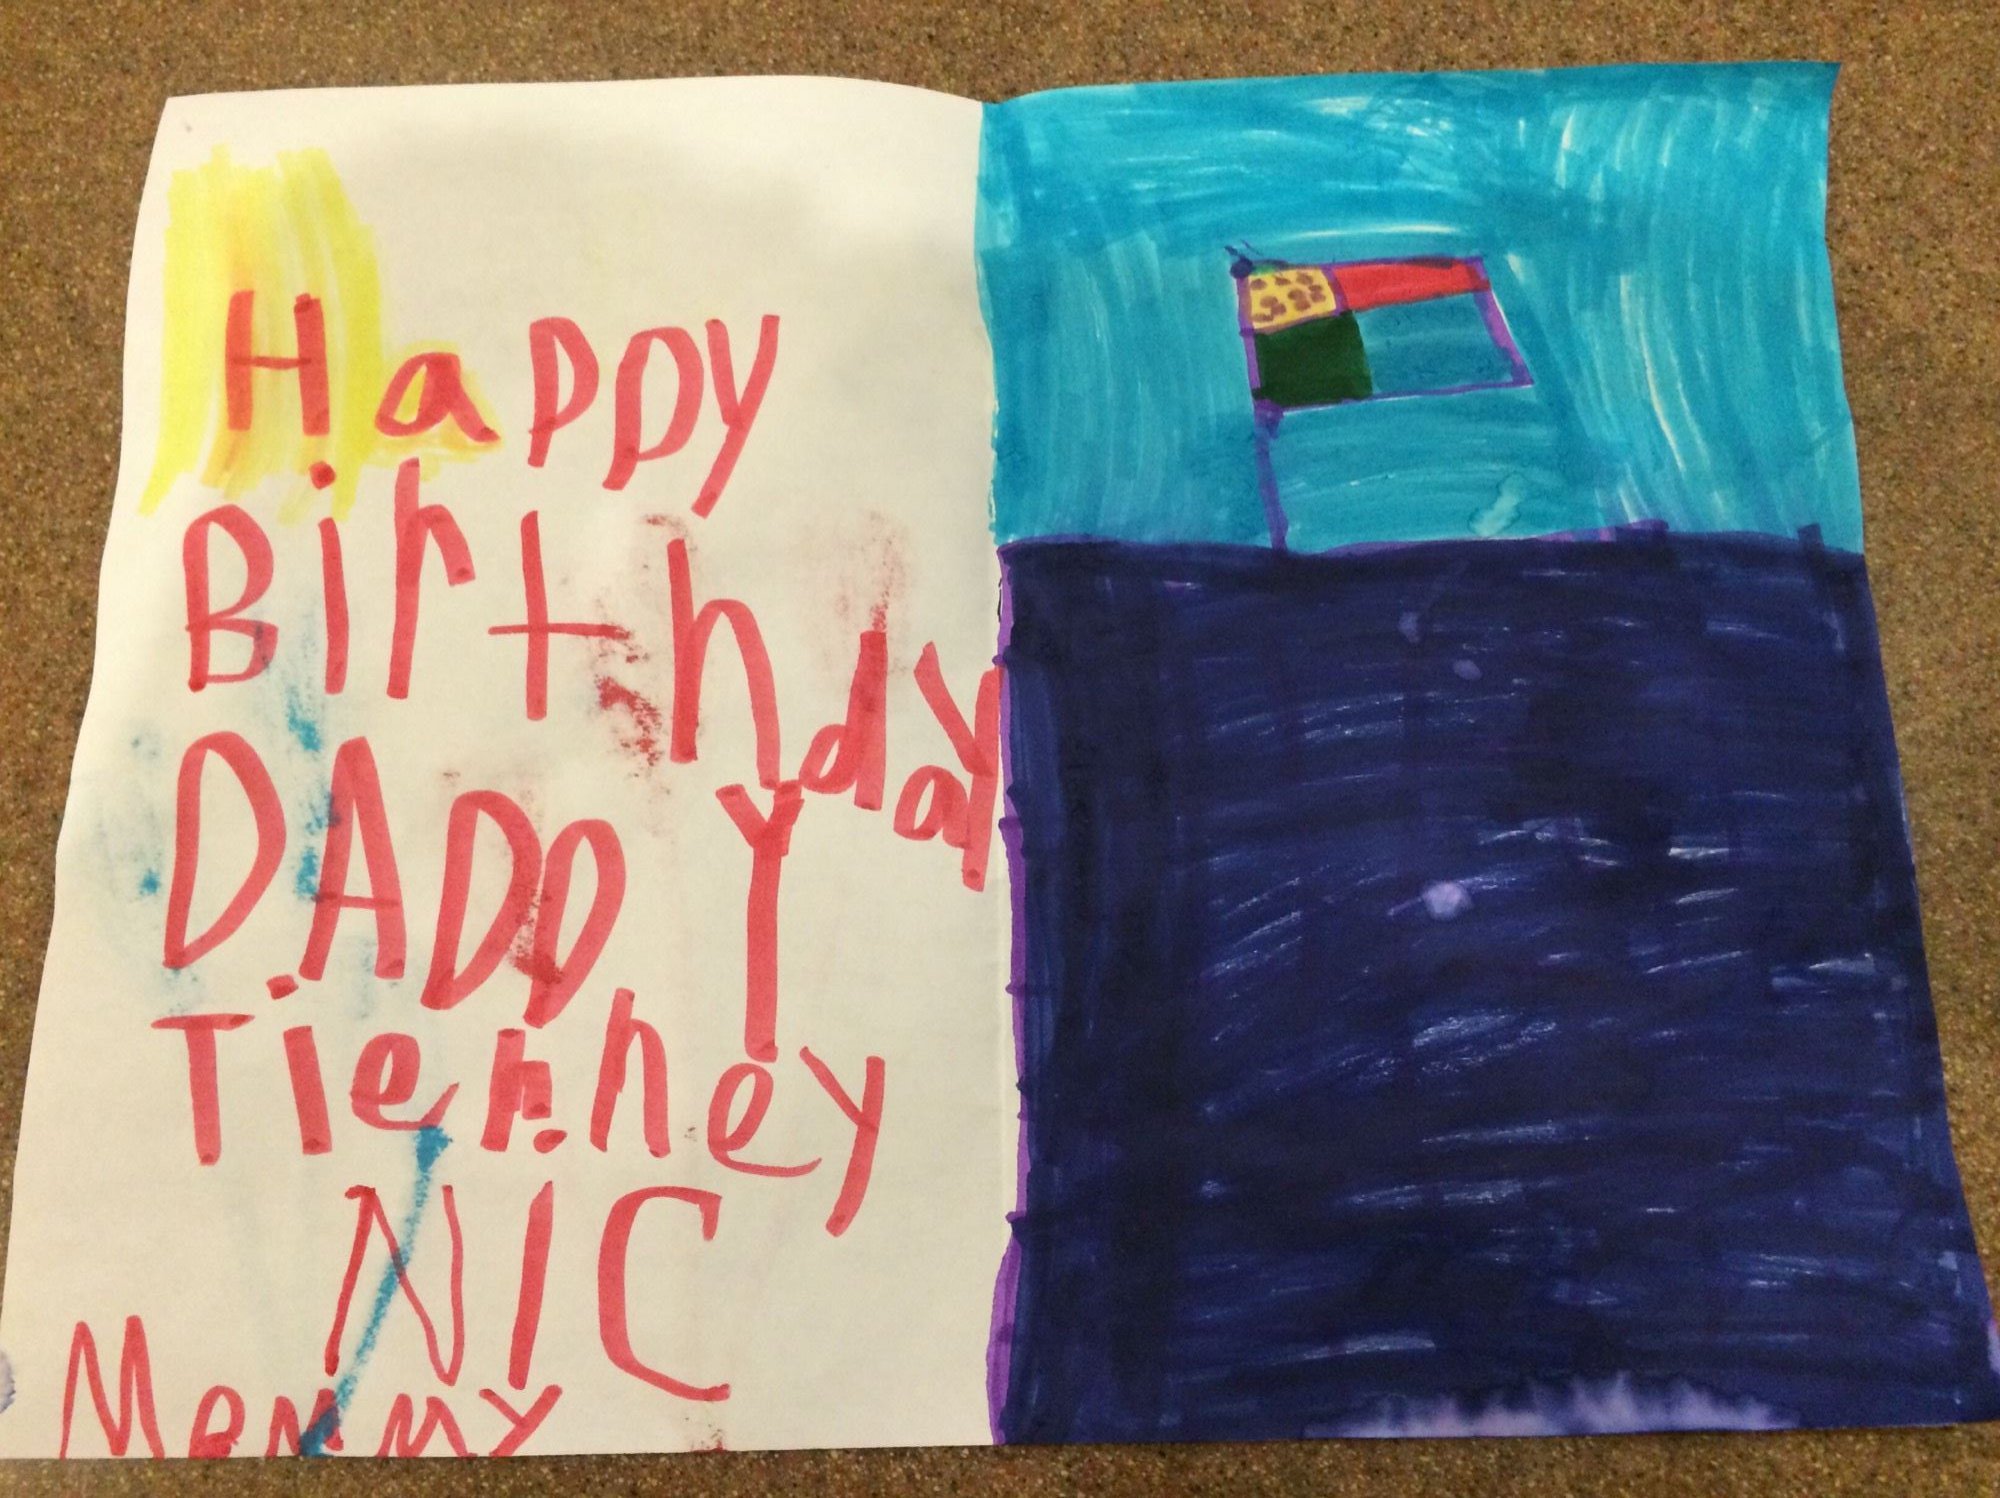 Happy
Birthday
DADDY
Tierney
NIC
Mommy